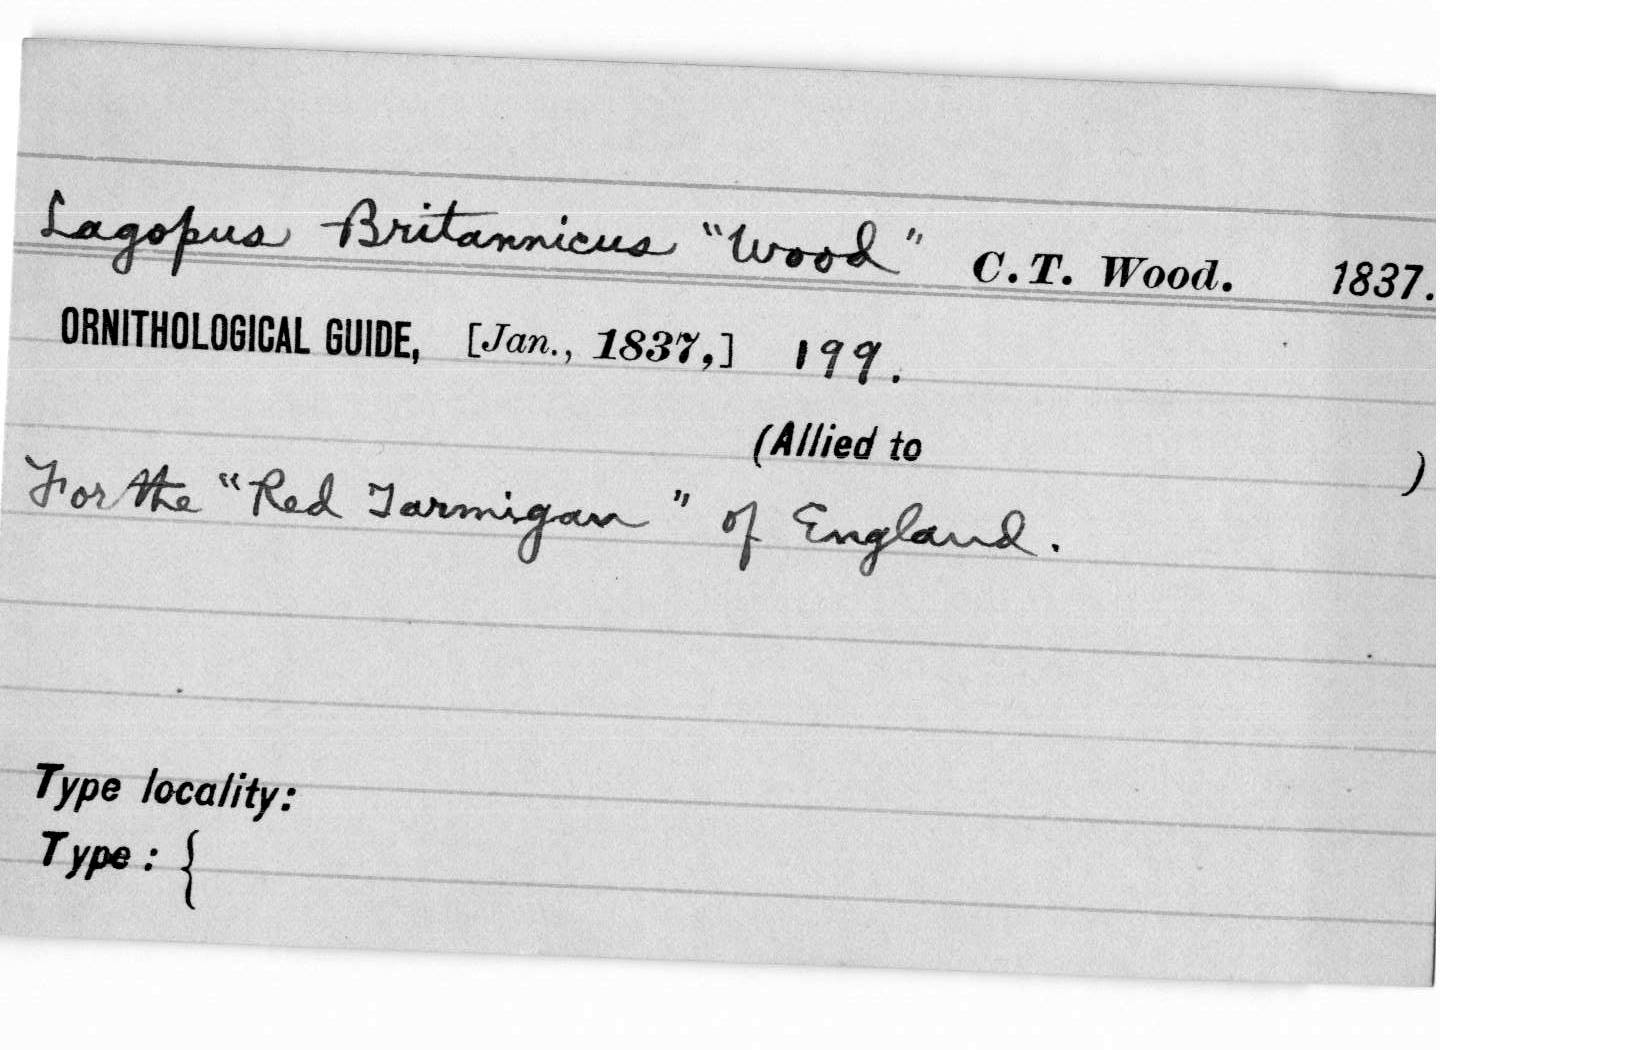 Lagopus Britannicus "Wood" C.T. Wood. 1837.
ORNITHOLOGICAL GUIDE, [Jan., 1837,] 199.
(Allied to )
For the "Red Tarmigan" of England.
Type locality:
Type: {